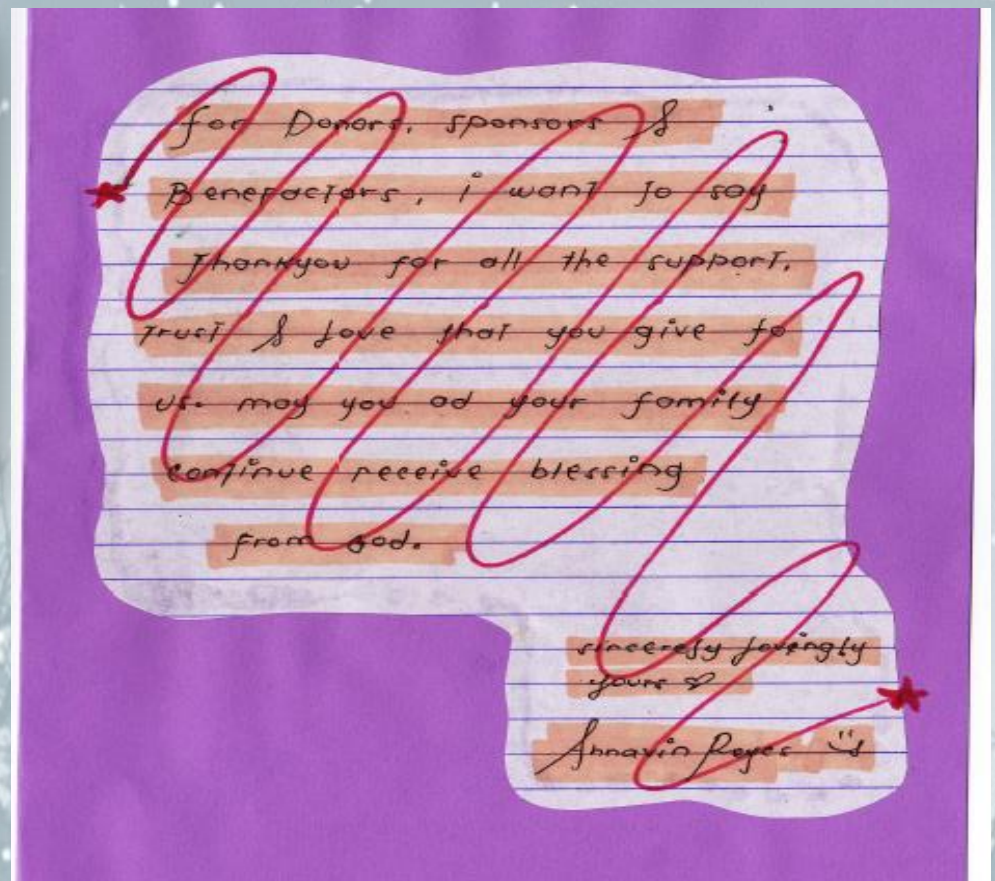 for Donors, sponsors &
Benefactors, i want to say
Thankyou for all the support,
Trust & Love that you give to
us. may you ad your family
continue receive blessing
from God.
sincerely lovingly
yours ♡
Annavin Reyes